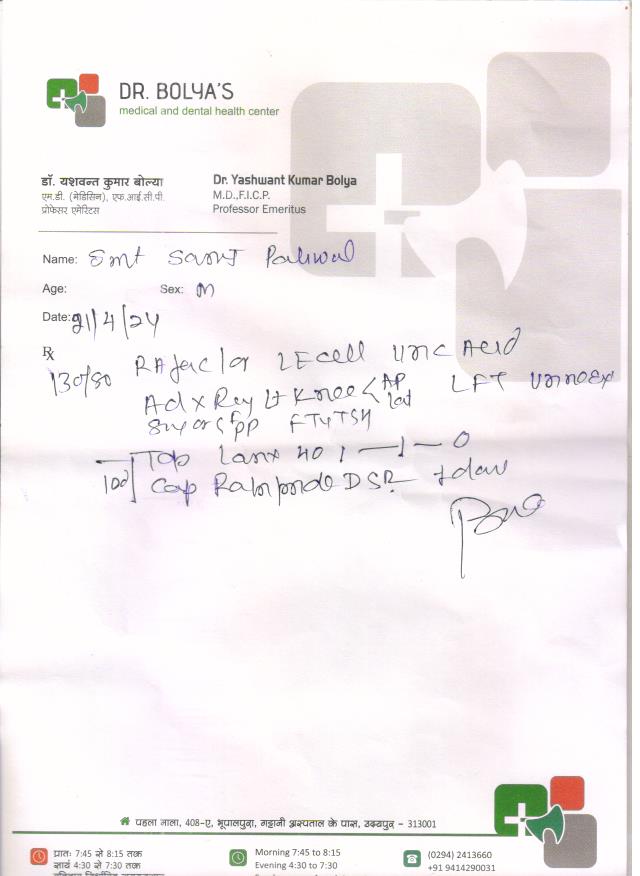 DR. BOLYA'S
medical and dental health center
डॉ. यशवन्त कुमार बोल्या
एम.डी. (मेडिसिन), एफ.आई.सी.पी.
प्रोफेसर एमेरिटस
Dr. Yashwant Kumar Bolya
M.D.,F.I.C.P.
Professor Emeritus
Name: Smt Paliwal
Age: Sex: M
Date: 21/4/24
Rx
130/80 RA factor LE cell Uric Acid
Ad x Ray Lt Knee < AP lat LFT Urine Ex
FT4 TSH
Tab 40 1 — 1 — 0
100 Cap DSR
पहला माला, 408-ए, भूपालपुरा, गट्टानी अस्पताल के पास, उदयपुर - 313001
प्रातः 7:45 से 8:15 तक
सायं 4:30 से 7:30 तक
Morning 7:45 to 8:15
Evening 4:30 to 7:30
(0294) 2413660
+91 9414290031